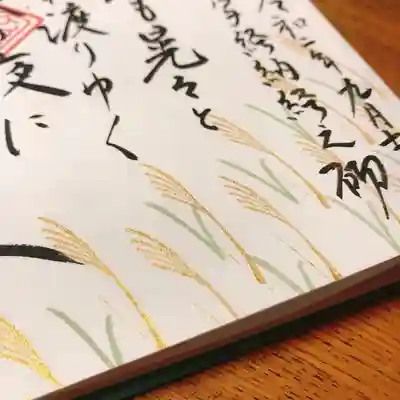 令和二年九月十
写経納経之砌
も晃々と
渡りゆく
夜に